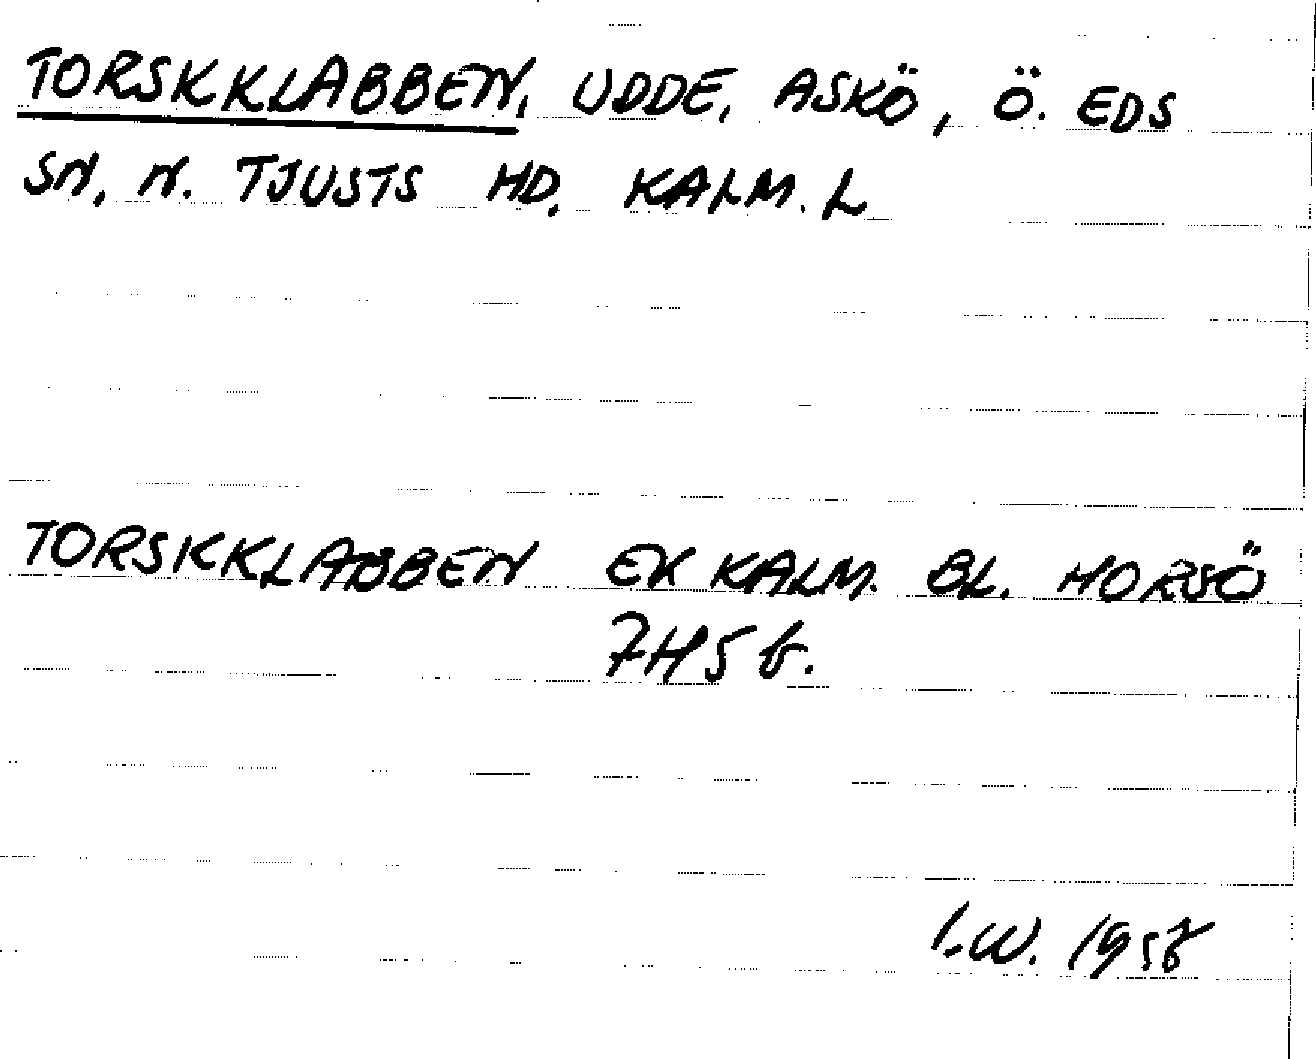 TORSKKLABBEN, UDDE, ASKÖ, Ö. EDS
SN, N. TJUSTS HD. KALM. L
TORSKKLABBEN EK KALM. BL. HORSÖ
7H5 b.
I.W. 1958